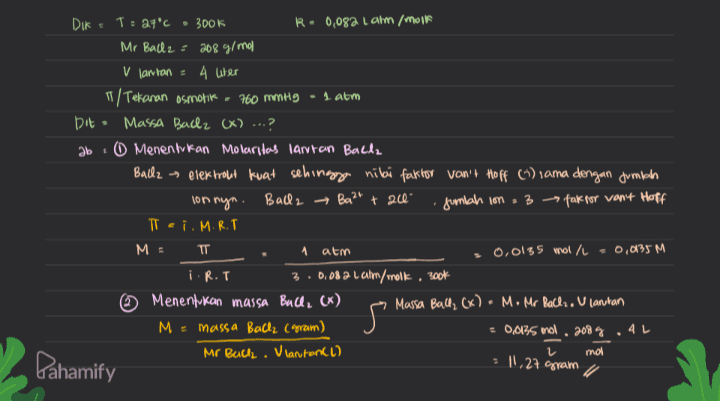 Dik = T = 27°C = 300K R = 0,082 L atm/molK
Mr BaCl2 = 208 g/mol
V larutan = 4 liter
π/Tekanan osmotik = 760 mmHg = 1 atm
Dit = Massa BaCl2 (x) ...?
Jb : ① Menentukan Molaritas larutan BaCl2
BaCl2 → elektrolit kuat sehingga nilai faktor van't Hoff (i) sama dengan jumlah
ion nya. BaCl2 → Ba2+ + 2Cl- . jumlah ion = 3 → faktor van't Hoff
π = i . M . R . T
M = π = 1 atm = 0,0135 mol/L = 0,0135 M
i . R . T 3 . 0,082 L atm/molK . 300K
② Menentukan massa BaCl2 (x) → Massa BaCl2 (x) = M . Mr BaCl2 . V larutan
M = massa BaCl2 (gram) = 0,0135 mol . 208 g . 4 L
Mr BaCl2 . V larutan (L) L mol
= 11,27 gram
Pahamify